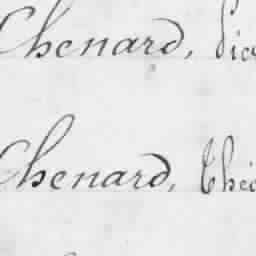 Chenard,
Chenard, Théo